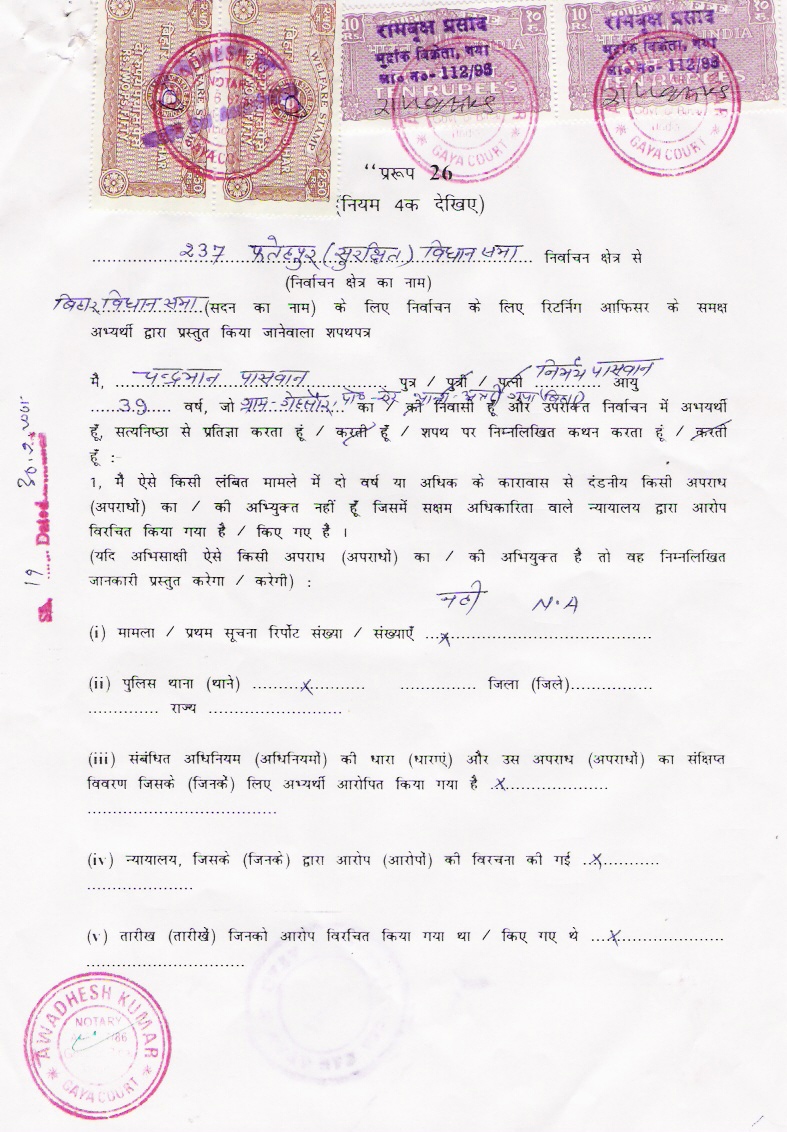 रामबृक्ष प्रसाद
मुद्रांक विक्रेता, गया
ला० न०- 112/86
TEN RUPEES
रामबृक्ष प्रसाद
मुद्रांक विक्रेता, गया
ला० न०- 112/86
TEN RUPEES
WELFARE STAMP
GAYA COURT
GAYA COURT
"प्ररूप 26
(नियम 4क देखिए)
237 फतेहपुर (सुरक्षित) विधान सभा निर्वाचन क्षेत्र से
(निर्वाचन क्षेत्र का नाम)
बिहार विधान सभा (सदन का नाम) के लिए निर्वाचन के लिए रिटर्निंग आफिसर के समक्ष
अभ्यर्थी द्वारा प्रस्तुत किया जानेवाला शपथपत्र
मै, चन्द्रभान पासवान पुत्र / पुत्री / पत्नी निर्मय पासवान आयु
39 वर्ष, जो ग्राम- का / की निवासी हूँ और उपरोक्त निर्वाचन में अभ्यर्थी
हूँ, सत्यनिष्ठा से प्रतिज्ञा करता हूं / करती हूँ / शपथ पर निम्नलिखित कथन करता हूं / करती
हूँ :-
1, मैं ऐसे किसी लंबित मामले में दो वर्ष या अधिक के कारावास से दंडनीय किसी अपराध
(अपराधों) का / की अभियुक्त नहीं हूँ जिसमें सक्षम अधिकारिता वाले न्यायालय द्वारा आरोप
विरचित किया गया है / किए गए है ।
(यदि अभिसाक्षी ऐसे किसी अपराध (अपराधों) का / की अभियुक्त है तो वह निम्नलिखित
जानकारी प्रस्तुत करेगा / करेगी) :
नही N.A
(i) मामला / प्रथम सूचना रिर्पोट संख्या / संख्याएँ ...x
(ii) पुलिस थाना (थाने) ........x........... ............... जिला (जिले)................
............. राज्य .........................
(iii) संबंधित अधिनियम (अधिनियमों) की धारा (धाराएं) और उस अपराध (अपराधों) का संक्षिप्त
विवरण जिसके (जिनके) लिए अभ्यर्थी आरोपित किया गया है .x...................
(iv) न्यायालय, जिसके (जिनके) द्वारा आरोप (आरोपों) की विरचना की गई ..x...........
(v) तारीख (तारीखें) जिनको आरोप विरचित किया गया था / किए गए थे ...x.....................
SL. 19 Dated
AWADHESH KUMAR
NOTARY
GAYA COURT